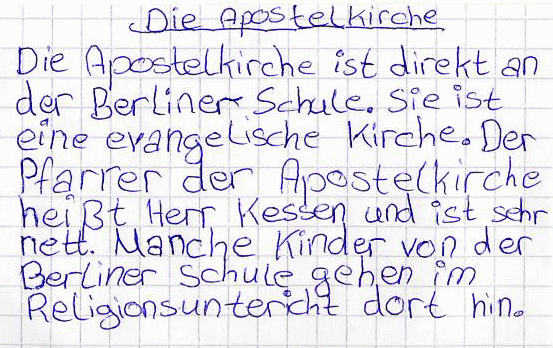 Die Apostelkirche
Die Apostelkirche ist direkt an
der Berliner Schule. Sie ist
eine evangelische Kirche. Der
Pfarrer der Apostelkirche
heißt Herr Kessen und ist sehr
nett. Manche Kinder von der
Berliner Schule gehen im
Religionsuntericht dort hin.